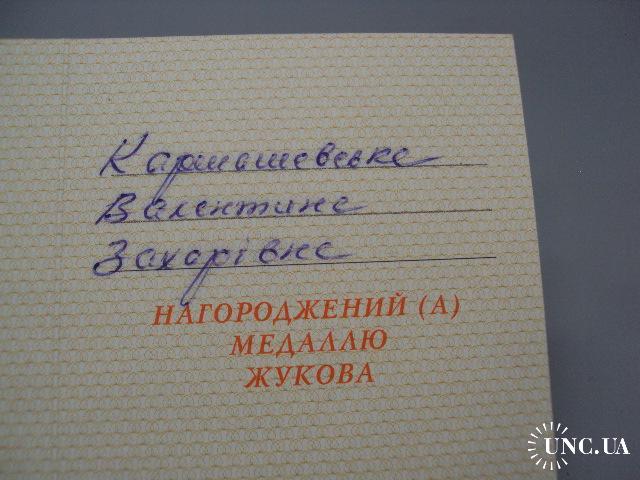 Кармашевська
Валентина
Захарівна
НАГОРОДЖЕНИЙ (А)
МЕДАЛЛЮ
ЖУКОВА
UNC.UA